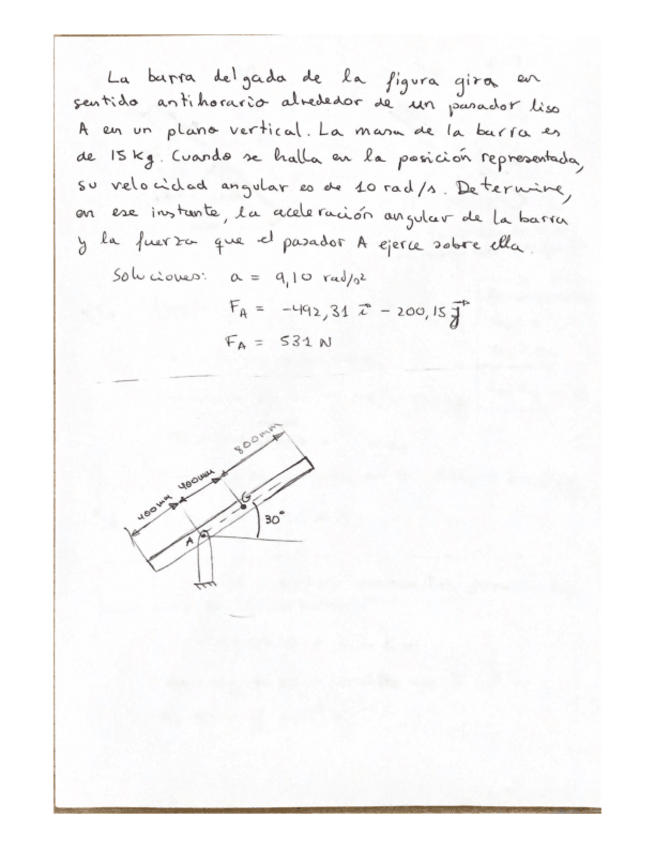 La barra delgada de la figura gira en
sentido antihorario alrededor de un pasador liso
A en un plano vertical. La masa de la barra es
de 15 kg. Cuando se halla en la posición representada,
su velocidad angular es de 10 rad/s. Determine,
en ese instante, la aceleración angular de la barra
y la fuerza que el pasador A ejerce sobre ella.
Soluciones: a = 9,10 rad/s²
F_A = -492,31 i⃗ - 200,15 j⃗
F_A = 531 N
800mm
400mm
400mm
G
30°
A